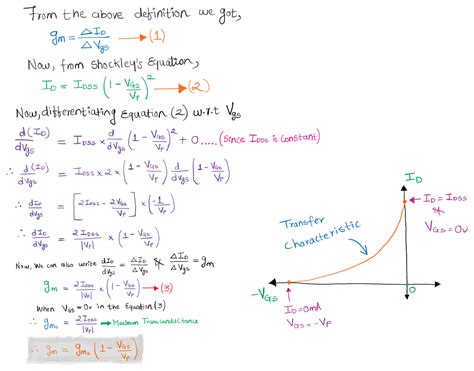 From the above definition we got,
gm = ΔI_D / ΔV_gs → (1)
Now, from Shockley's Equation,
I_D = I_DSS (1 - V_GS/V_P)² → (2)
Now, differentiating Equation (2) w.r.t V_gs
d(I_D)/dV_gs = I_DSS × d/dV_gs (1 - V_GS/V_P)² + 0 ..... (since I_DSS is constant)
∴ d(I_D)/dV_gs = I_DSS × 2 × (1 - V_GS/V_P) d/dV_gs (1 - V_GS/V_P)
∴ dI_D/dV_gs = [2I_DSS - 2V_GS/V_P] × (-1/V_P)
∴ dI_D/dV_gs = 2I_DSS/|V_P| × (1 - V_GS/V_P)
Now, We can also write dI_D/dV_gs = ΔI_D/ΔV_gs & ΔI_D/ΔV_gs = gm
gm = 2I_DSS/|V_P| × (1 - V_GS/V_P) → (3)
When V_GS = 0v in the Equation (3)
∴ gm₀ = 2I_DSS/|V_P| → Maximum Transconductance
∴ gm = gm₀ (1 - V_GS/V_P)
I_D
I_D = I_DSS
&
V_GS = 0v
Transfer
Characteristic
-V_GS
0
I_D = 0mA
V_GS = -V_P